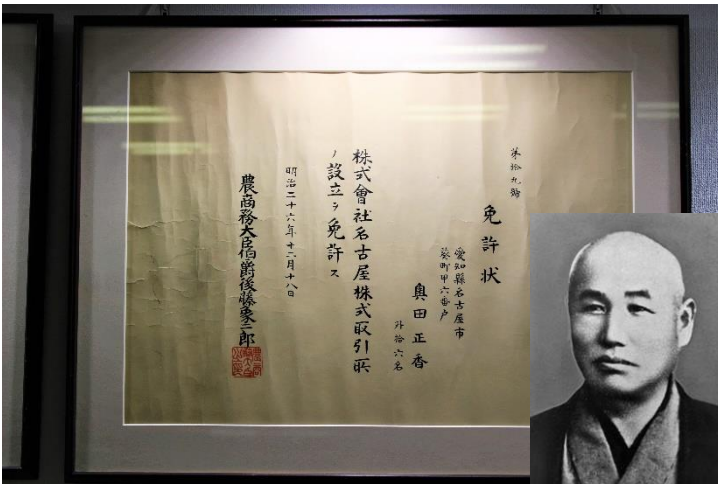 第拾九號
免許状
愛知縣名古屋市
葵町甲六番戸
奥田正香
外拾六名
株式會社名古屋株式取引所
ノ設立ヲ免許ス
明治二十六年十二月十八日
農商務大臣伯爵後藤象二郎